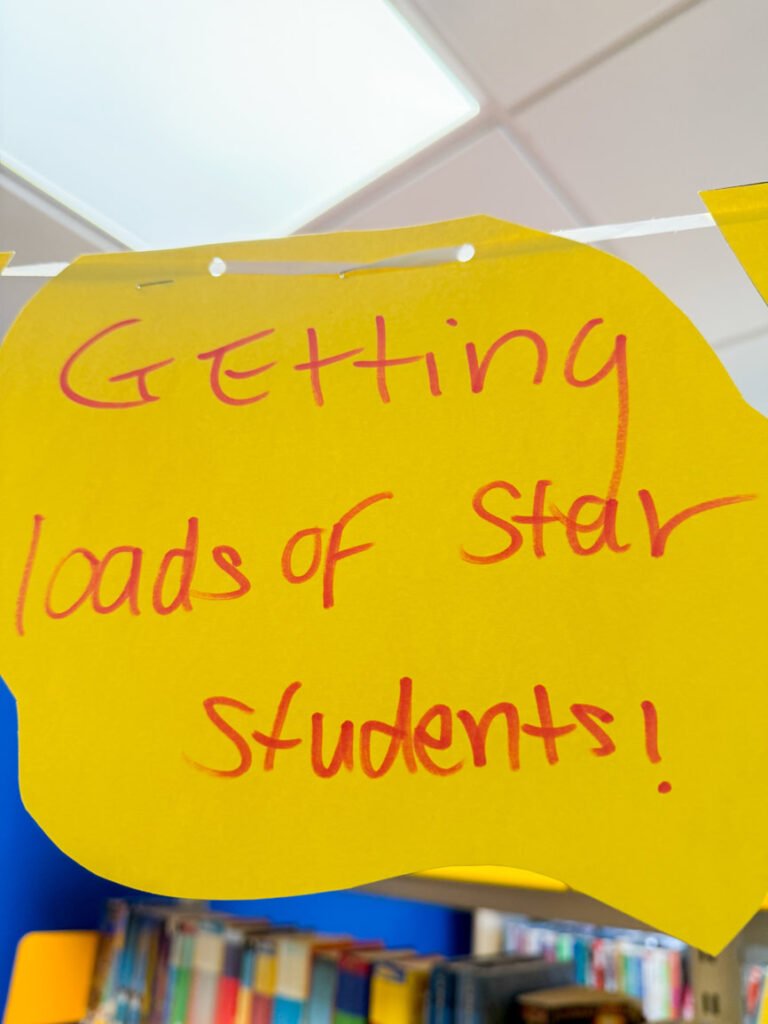 Getting
loads of star
students!